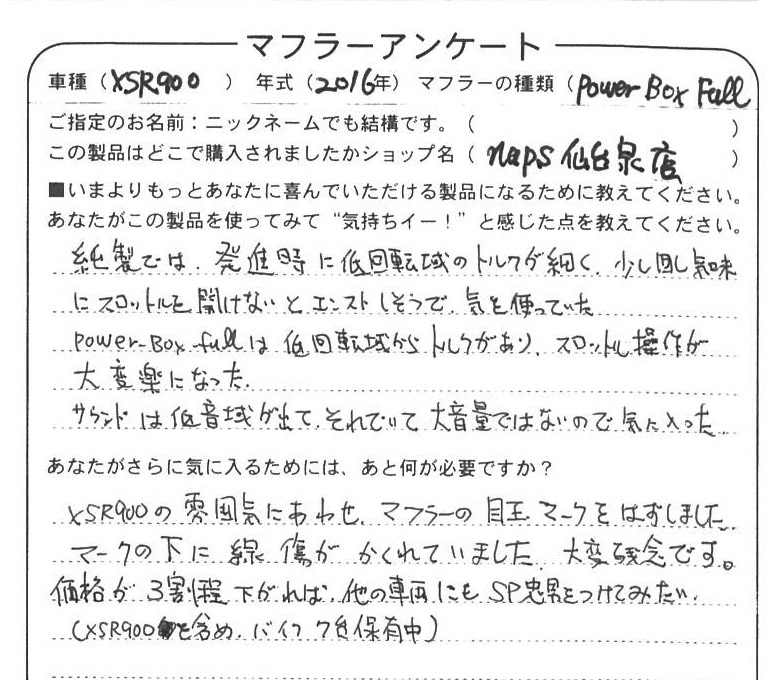 マフラーアンケート
車種（XSR900）年式（2016年）マフラーの種類（Power Box Full
ご指定のお名前：ニックネームでも結構です。（ ）
この製品はどこで購入されましたかショップ名（naps 仙台泉店）
■いまよりもっとあなたに喜んでいただける製品になるために教えてください。
あなたがこの製品を使ってみて“気持ちイー！”と感じた点を教えてください。
純製では、発進時に低回転域のトルクが細く、少し回し気味
にスロットルを開けないとエンストしそうで、気を使っていた
Power-Box fullは低回転域からトルクがあり、スロットル操作が
大変楽になった。
サウンドは低音域が出て、それでいて大音量ではないので気に入った
あなたがさらに気に入るためには、あと何が必要ですか？
XSR900の雰囲気にあわせ、マフラーの目玉マークをはずしました
マークの下に線傷がかくれていました。大変残念です。
価格が3割程下がれば、他の車両にもSP忠男をつけてみたい。
（XSR900を含め、バイク7台保有中）